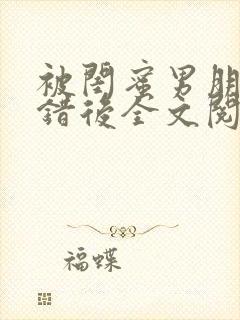 被閨蜜男朋
錯後全文閱
福蝶